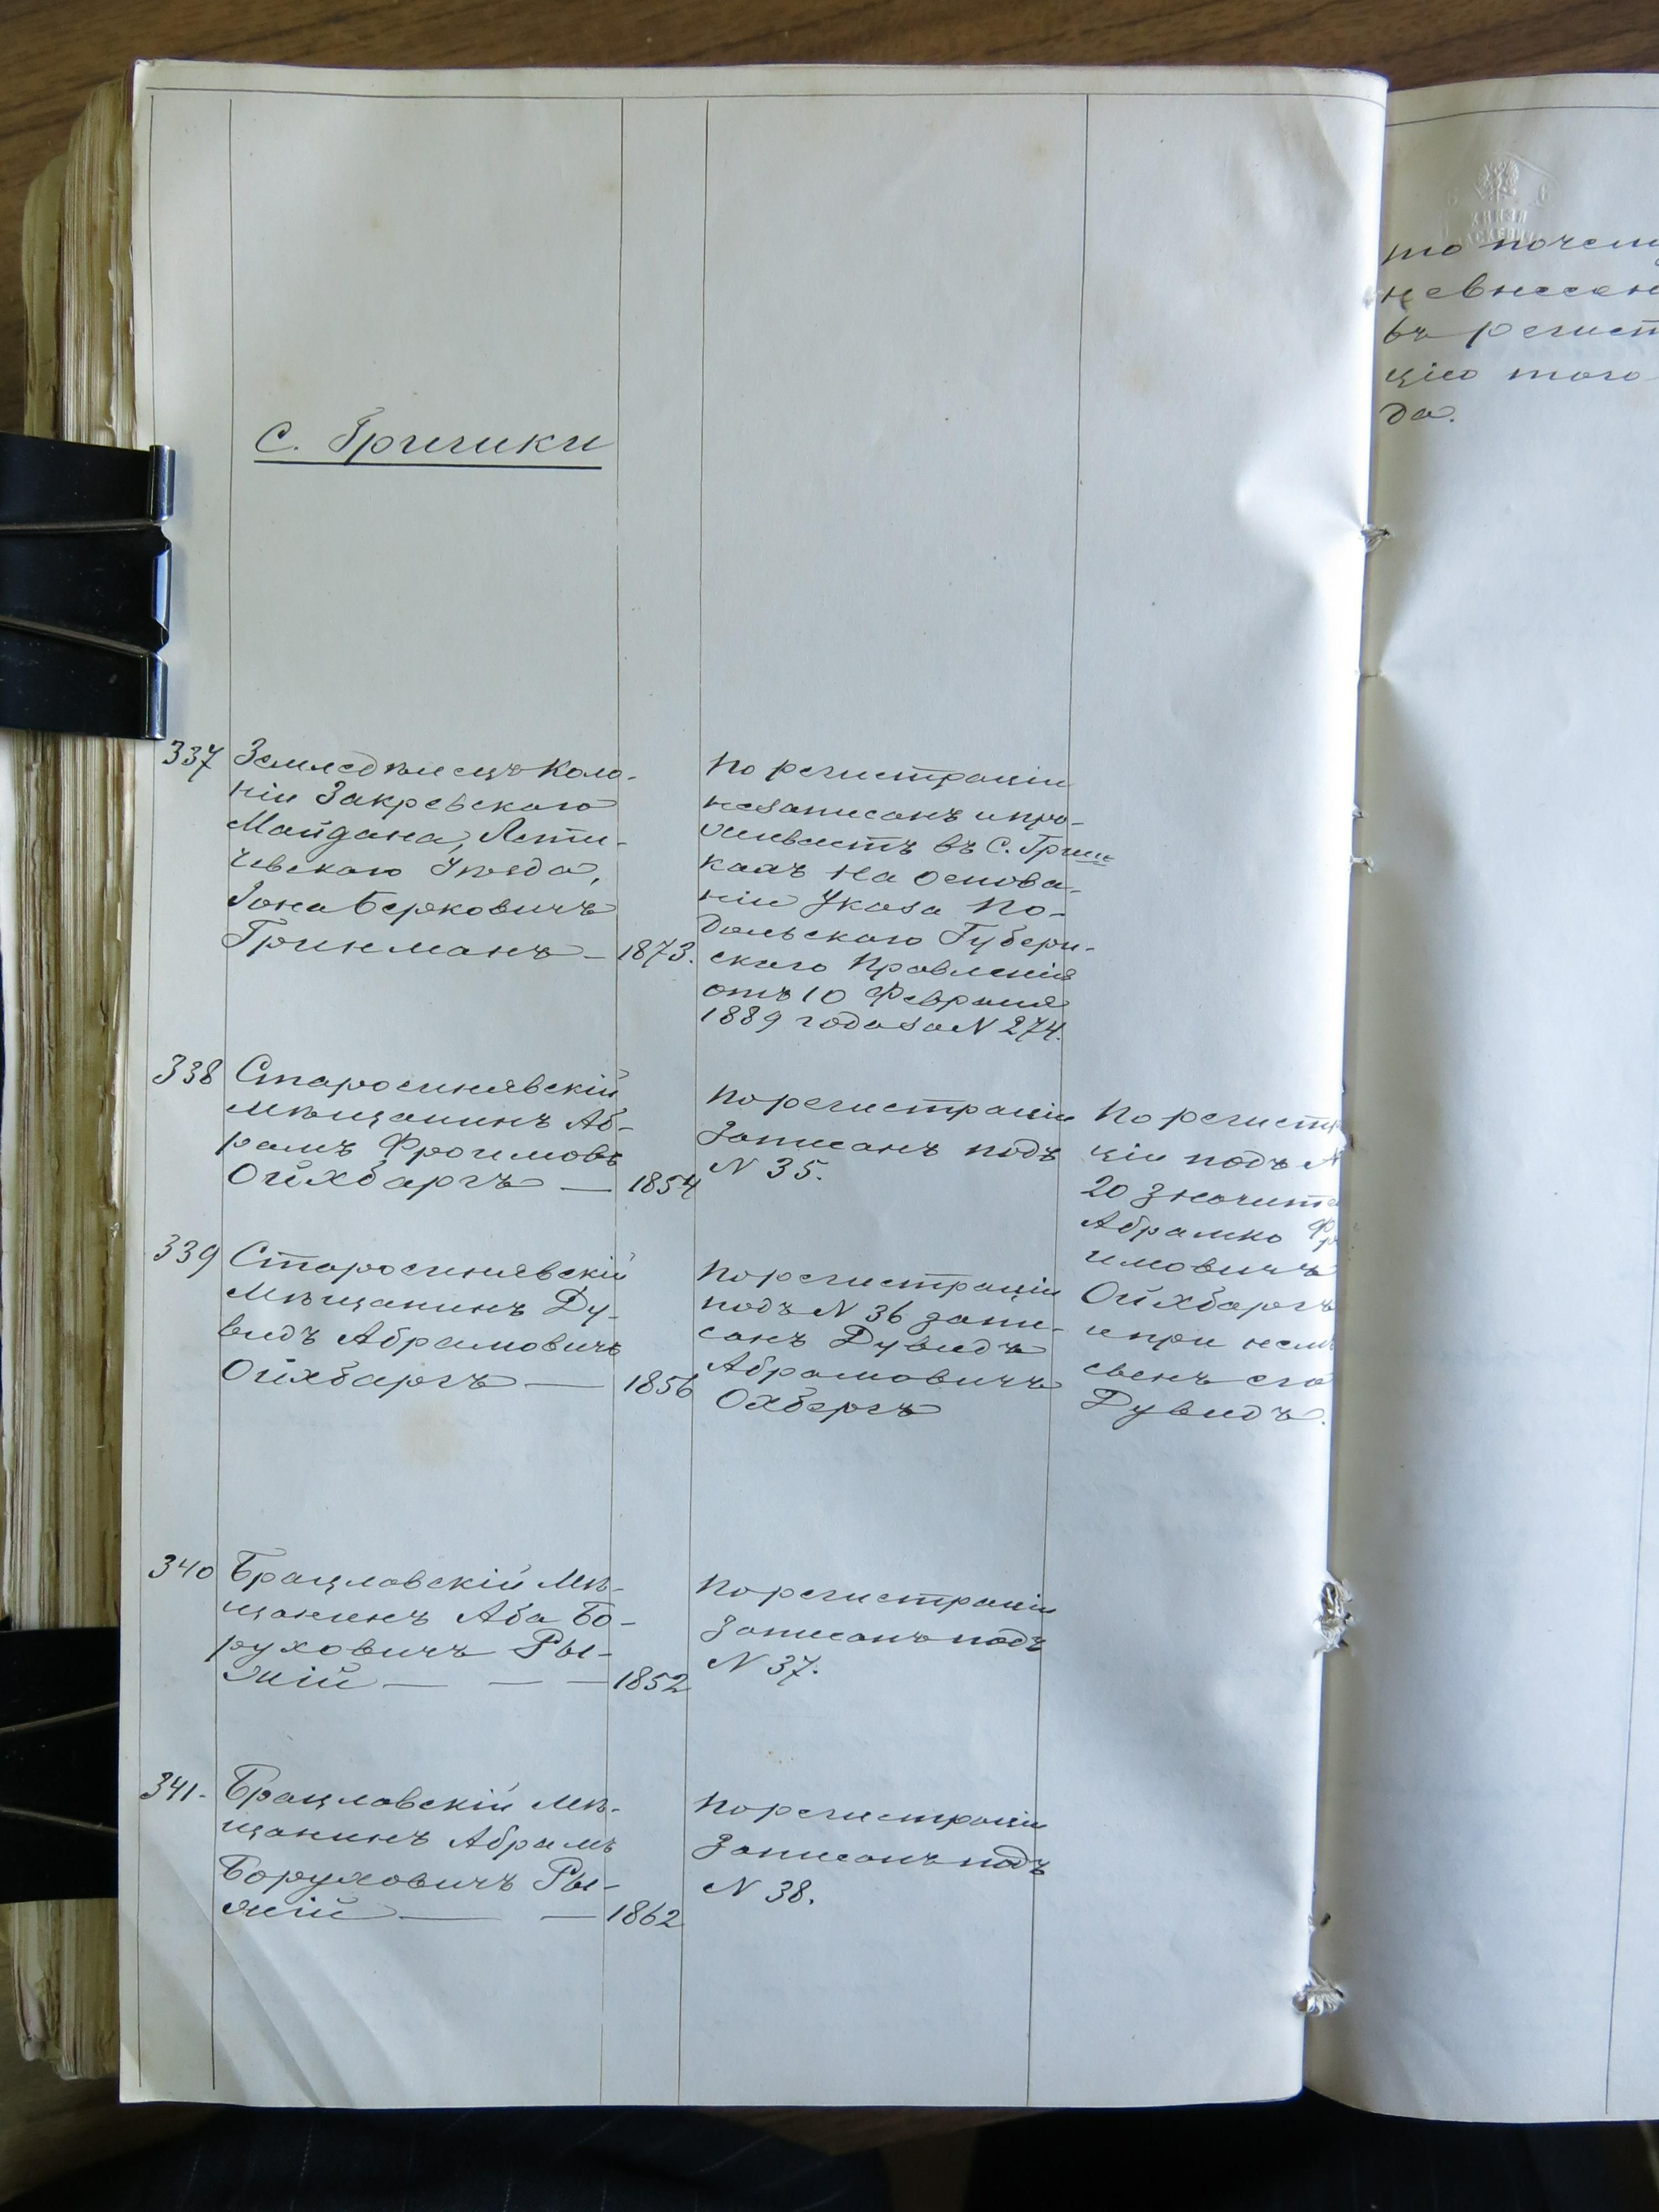 С. Гришки
337 Земледѣлецъ Коло-
ніи Закревскаго
Майдана, Лети-
чевскаго Уѣзда,
Іона Берковичъ
Гринманъ — 1873.
По регистраціи
незаписанъ и про-
живаетъ въ С. Гриш-
кахъ на основа-
ніи Указа По-
дольскаго Губерн-
скаго Правленія
отъ 10 Февраля
1889 года за N 274.
338 Старосинявскій
мѣщанинъ Аб-
рамъ Фроимовъ
Ойхбаргъ — 1854
По регистраціи
записанъ подъ
N 35.
По регистр
ціи подъ N
20 значит
Абрамко Фр
имовичъ
Ойхбаргъ
и при немъ
сынъ его
Дувидъ.
339 Старосинявскій
Мѣщанинъ Ду-
видъ Абрамовичъ
Ойхбаргъ — 1856
По регистраціи
подъ N 36 запи-
санъ Дувидъ
Абрамовичъ
Охбергъ
340 Брацлавскій Мѣ-
щанинъ Аба Бо-
руховичъ Ры-
жій — — — 1852
По регистраціи
Записанъ подъ
N 37.
341- Брацлавскій мѣ-
щанинъ Абрамъ
Боруховичъ Ры-
жій — — 1862
По регистраціи
Записанъ подъ
N 38.
КНЯЗЯ
то почему
невнесен
въ регист
цію того
да.